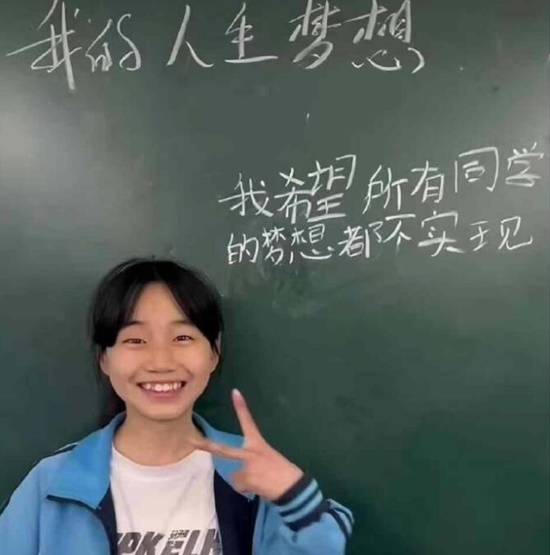 我的人生梦想
我希望所有同学
的梦想都不实现